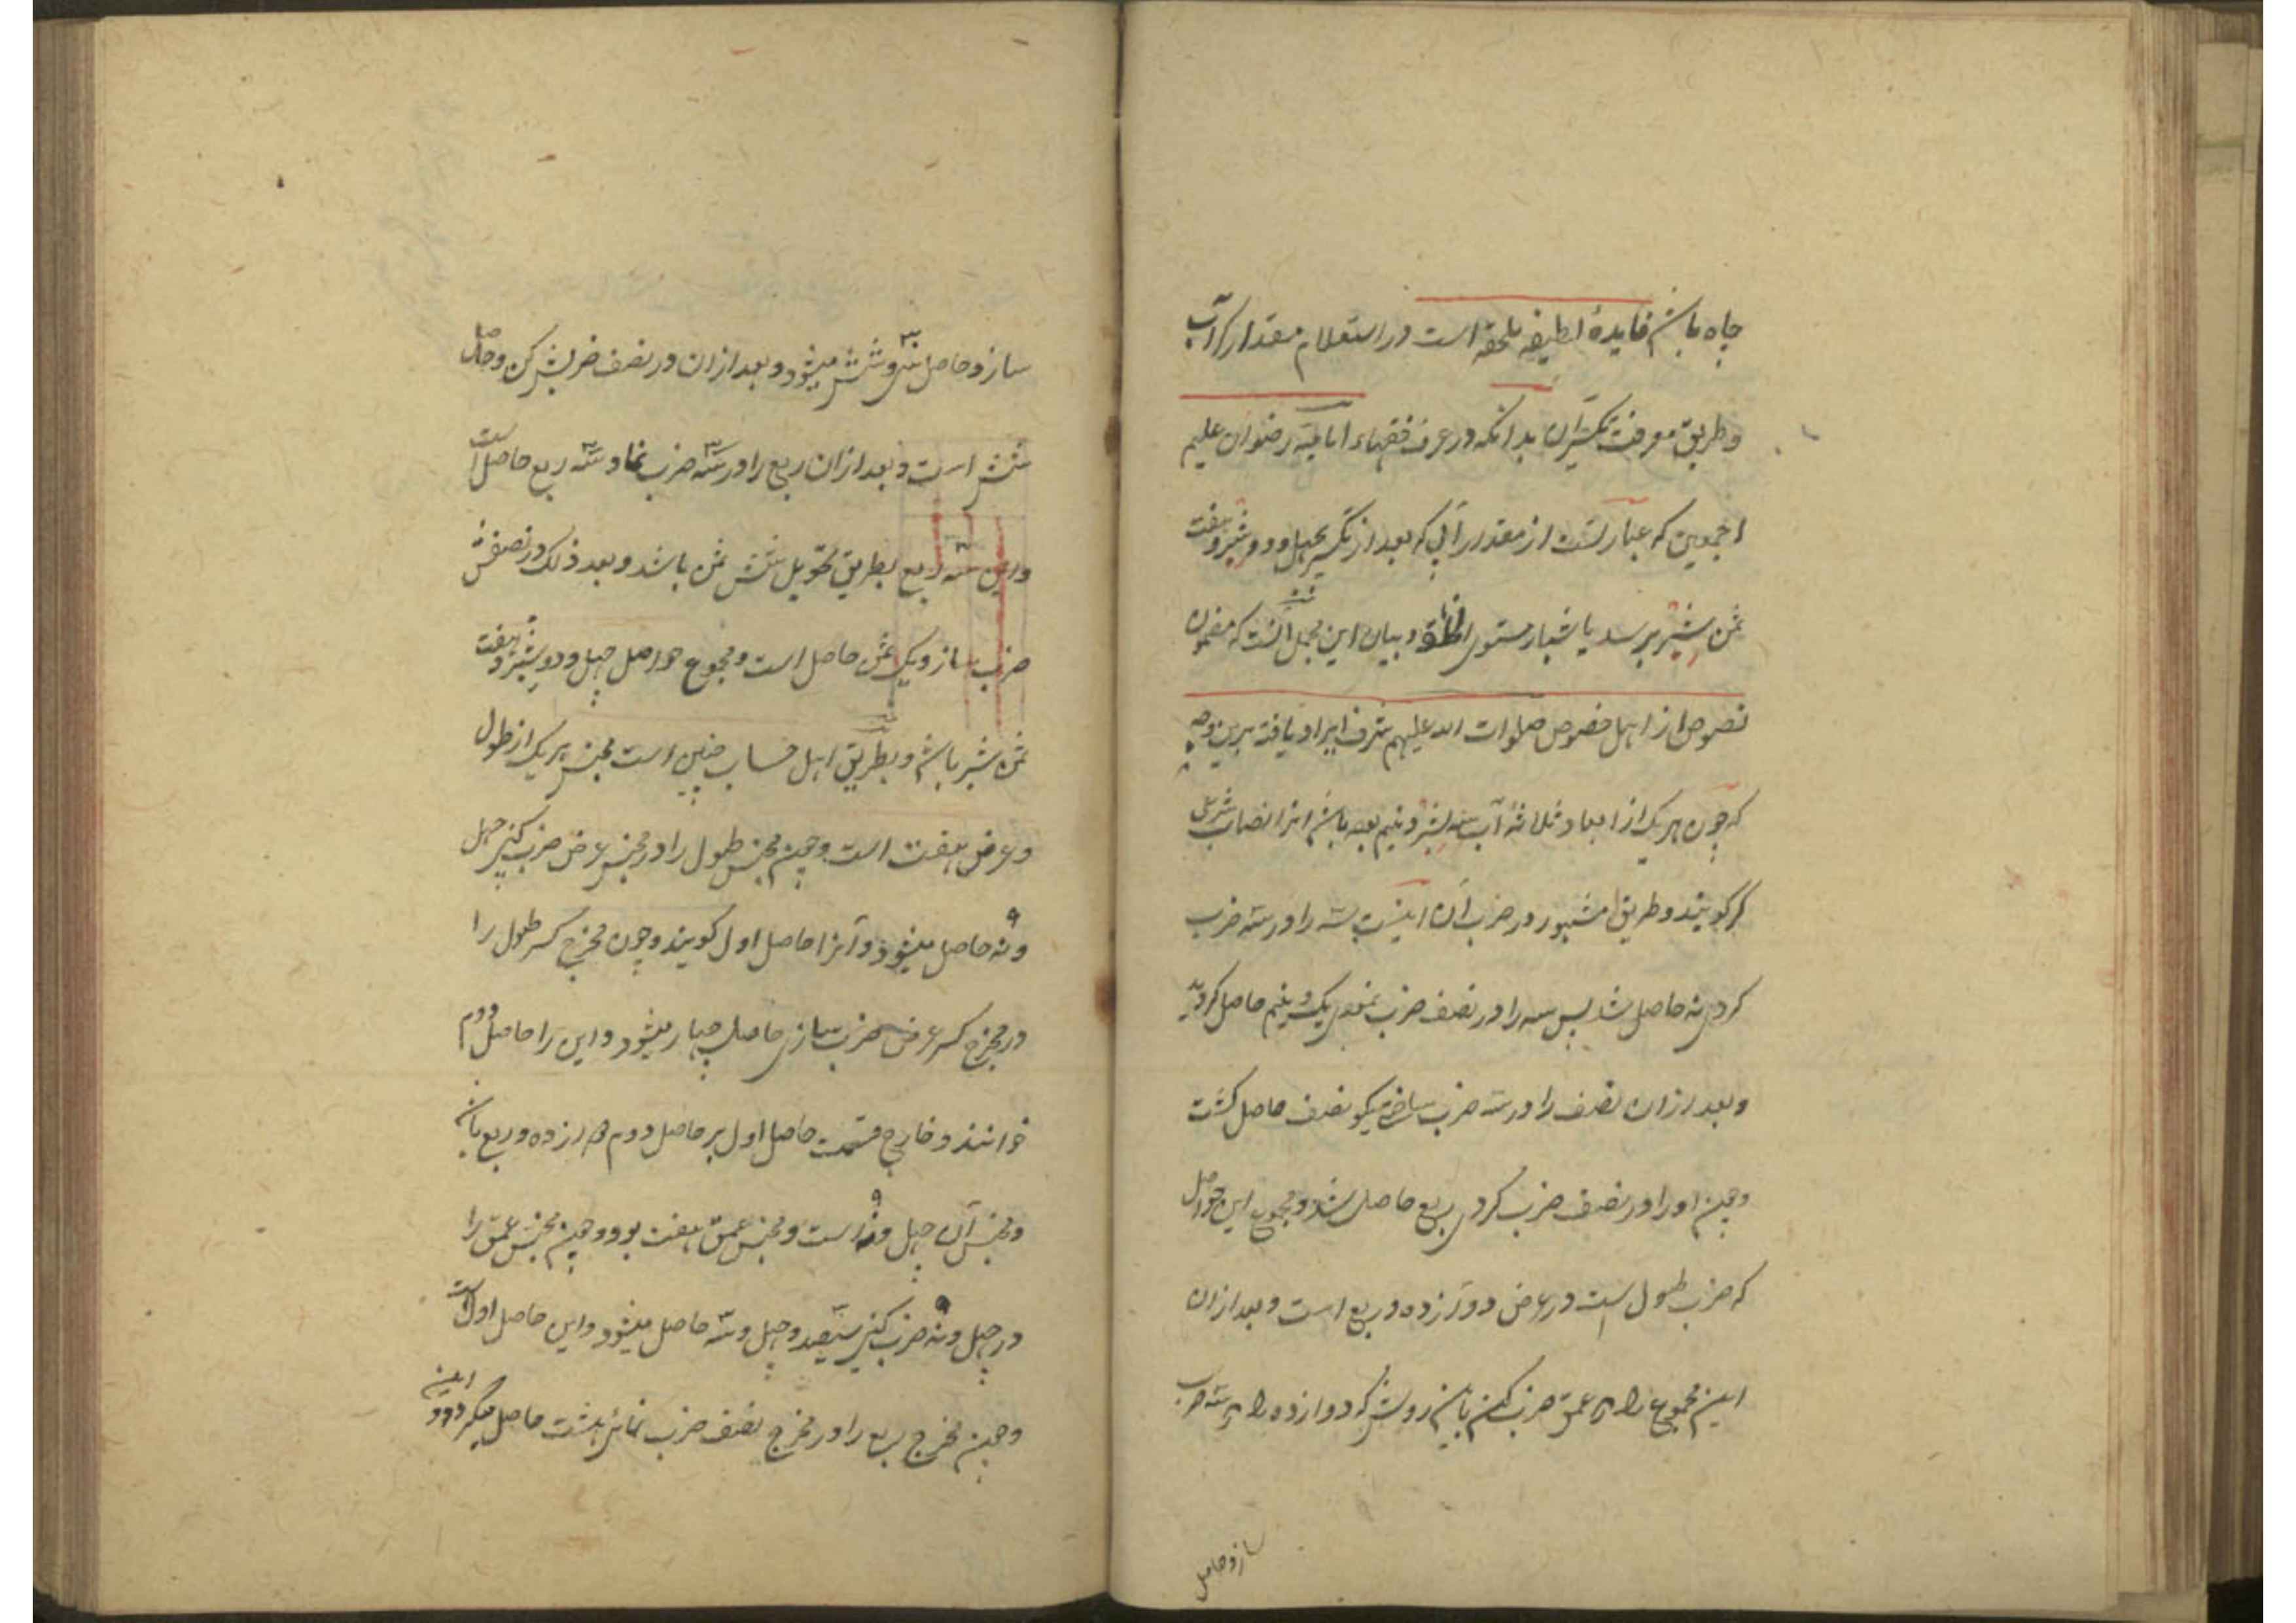 چاه باشد فایدهٔ لطیفه ملحقه است در استعلام مقدار کر آب
و طریق معرفت تکسیر آن بدانکه در عرف فقهاء امامیه رضوان علیهم
اجمعین کر عبارتست از مقدار آبی که بعد از تکسیر بچهل و دو شبر و هفت
ثمن شبر برسد باشبار مستوی الخلقة و بیان این مجمل آنست که مضمون
نصوص از اهل خصوص صلوات الله علیهم شرف ایراد یافته برین وجه
که چون هریک از ابعاد ثلاثهٔ آب سه شبر و نیم بوده باشد آنرا نصاب شرعی
کر گویند و طریق مشهور در ضرب آن اینست سه را در سه ضرب
کردی نه حاصل شد پس سه را در نصف ضرب نمودی یک و نیم حاصل گردید
و بعد از آن نصف را در سه ضرب ساختی یک و نصف حاصل گشت
و چون او را در نصف ضرب کردی ربع حاصل شد و مجموع این حواصل
که ضرب طول است در عرض دوازده و ربع است و بعد از آن
این مجموع را در عمق ضرب کن باین روش که دوازده را در سه ضرب
ساز و حاصل
ساز و حاصل سی و شش میشود و بعد از آن در نصف ضربش کن و حاصل
شش است و بعد از آن ربع را در سه ضرب نما و سه ربع حاصل است
و این سه ربع بطریق تحویل شش ثمن باشد و بعد ذلک در نصفش
ضرب ساز و یک ثمن حاصل است و مجموع حواصل چهل و دو شبر و هفت
ثمن شبر باشد و بطریق اهل حساب چنین است مجنس هریک از طول
و عرض هفت است و چون مجنس طول را در مجنس عرض ضرب کنی چهل
و نه حاصل میشود و آنرا حاصل اول گویند و چون مخرج کسر طول را
در مخرج کسر عرض ضرب سازی حاصل چهار میشود و این را حاصل دوم
خوانند و خارج قسمت حاصل اول بر حاصل دوم دوازده و ربع باشد
و مجنس آن چهل و نه است و مجنس عمق هفت بود و چون مجنس عمق را
در چهل و نه ضرب کنی سیصد و چهل و سه حاصل میشود و این حاصل اول است
و چون مخرج ربع را در مخرج نصف ضرب نمائی هشت حاصل میگردد و این